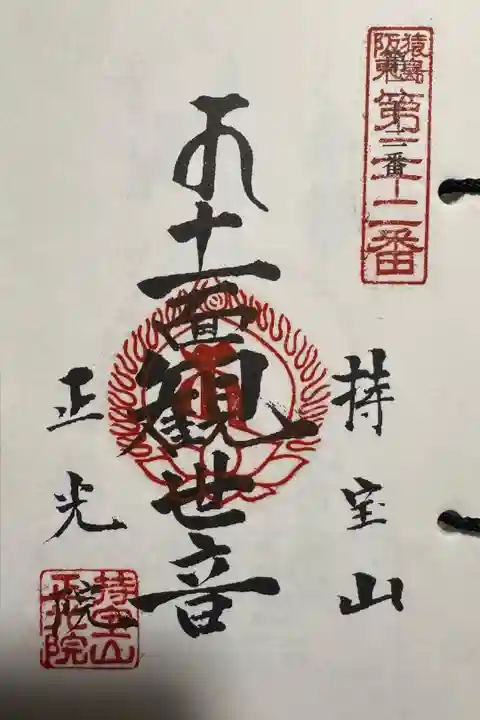 猿嶌
阪東
第三十二番
持宝山
十一面観世音
正光院
持宝山
正光院